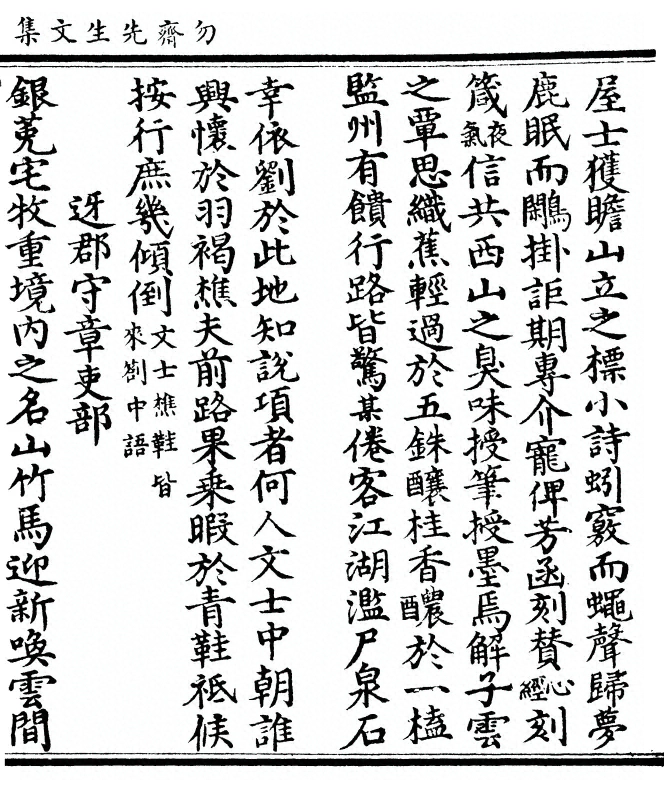 勿齋先生文集
屋士獲瞻山立之標小詩蚓竅而蠅聲歸夢
鹿眠而鷴掛詎期專介寵俾芳函刻賛心經刻
箴夜氣信共西山之臭味授筆授墨焉解子雲
之覃思織蕉輕過於五銖釀桂香醲於一榼
監州有饋行路皆驚某倦客江湖濫尸泉石
幸依劉於此地知說項者何人文士中朝誰
興懷於羽褐樵夫前路果乗暇於青鞋祗候
按行庶幾傾倒文士樵鞋皆來劄中語
迓郡守章吏部
銀菟宅牧重境内之名山竹馬迎新喚雲間